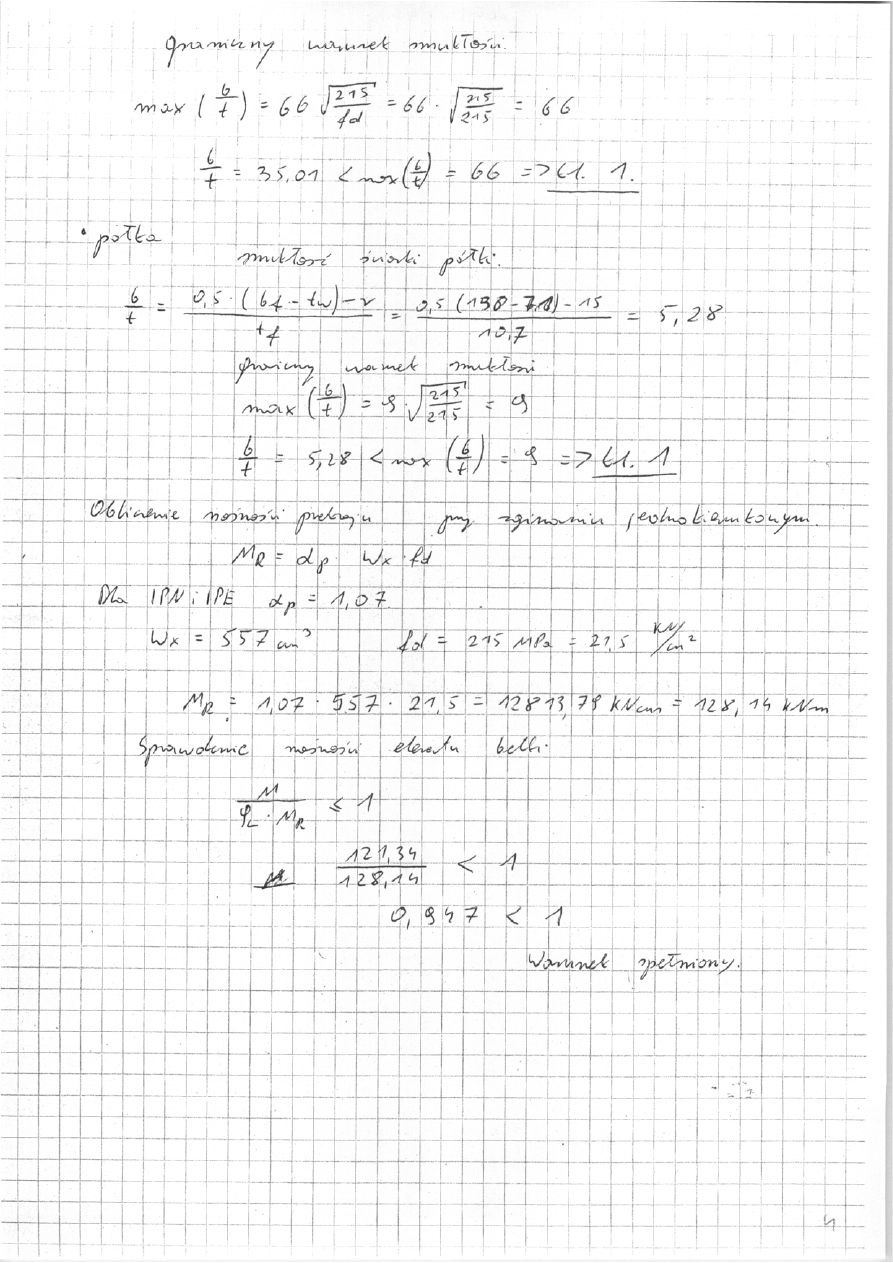 graniczny warunek smukłości.
max (b/t) = 66 √(215/fd) = 66 · √(215/215) = 66
b/t = 35,01 < max (b/t) = 66 => kl. 1.
• półka
smukłość ścianki półki:
b/t = (0,5 · (bf - tw) - r)/tf = (0,5 (150 - 7,1) - 15)/10,7 = 5,28
graniczny warunek smukłości
max (b/t) = 9 · √(215/215) = 9
b/t = 5,28 < max (b/t) = 9 => kl. 1
Obliczenie nośności przekroju przy zginaniu jednokierunkowym.
MR = αp · Wx · fd
Dla IPN i IPE αp = 1,07
Wx = 557 cm³ fd = 215 MPa = 21,5 kN/cm²
MR = 1,07 · 557 · 21,5 = 12813,79 kNcm = 128,14 kNm
Sprawdzenie nośności elementu belki.
M/(φL · MR) ≤ 1
121,34/128,14 < 1
0,947 < 1
Warunek spełniony.